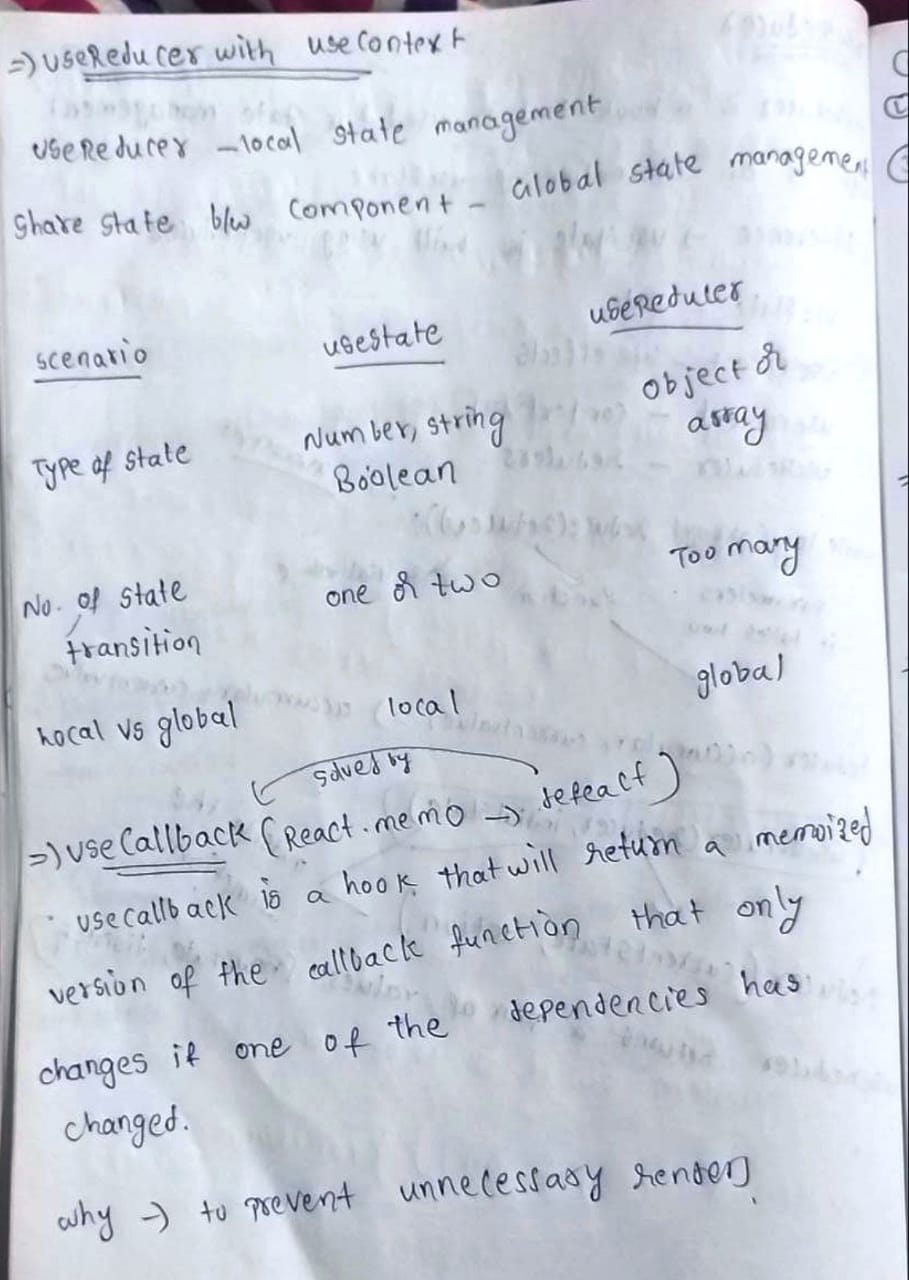 => useReducer with useContext
useReducer - local state management
Share state b/w Component - Global state managemen
scenario usestate useReducer
Type of state Number, string Boolean object or array
No. of state transition one or two Too many
Local vs global local global
solved by
=> useCallback (React.memo → defeact)
usecallback is a hook that will return a memoized
version of the callback function that only
changes if one of the dependencies has
changed.
why → to prevent unnecessary renders